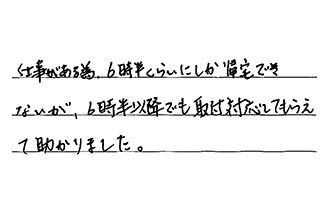 仕事がある為、6時半くらいにしか帰宅でき
ないが、6時半以降でも取付対応してもらえ
て助かりました。